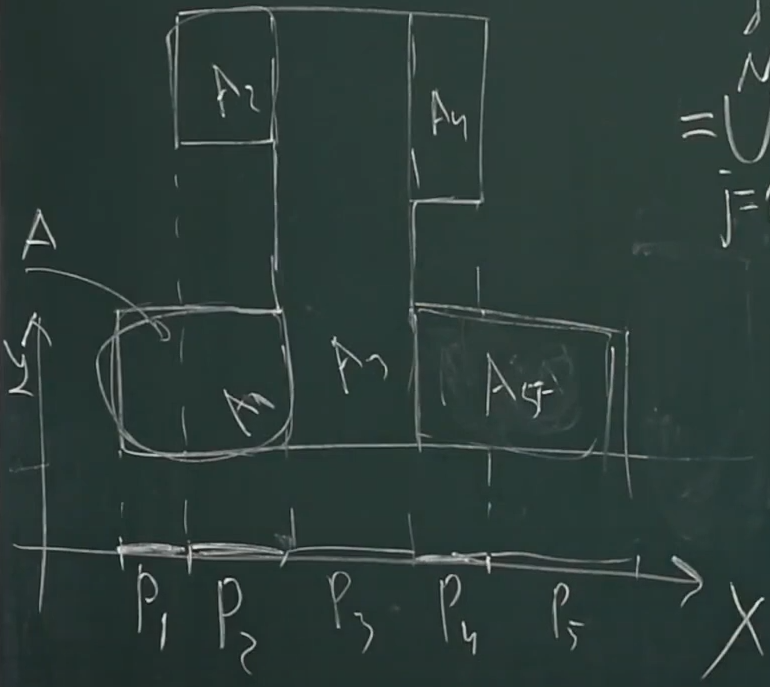 A₂
A₄
= ∪
j=
A
y
A₁
A₃
A₅
P₁ P₂ P₃ P₄ P₅
X